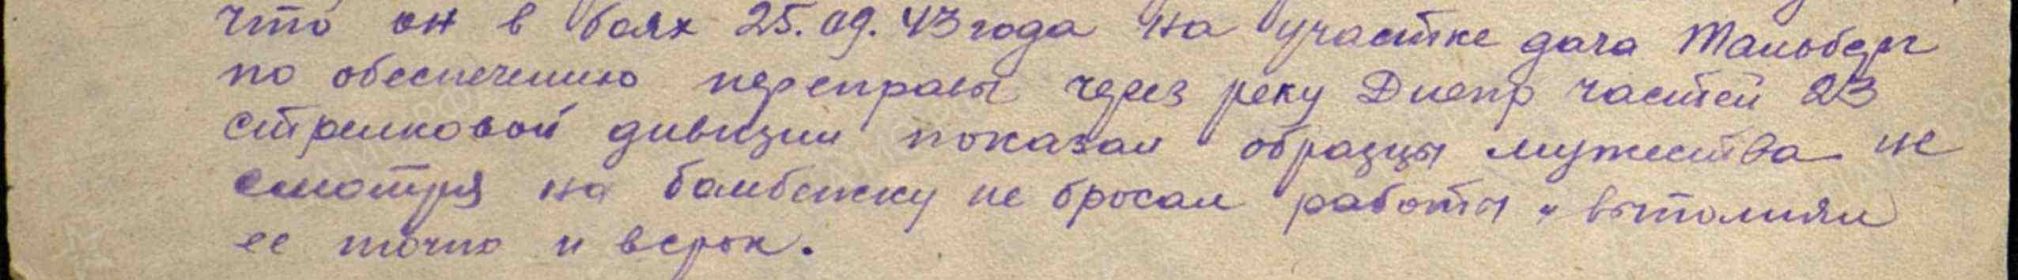 что он в боях 25.09.43 года на участке дача Тальберг
по обеспечению переправы через реку Днепр частей 23
стрелковой дивизии показал образцы мужества не
смотря на бамбежку не бросал работы и выполнял
ее точно и всрок.